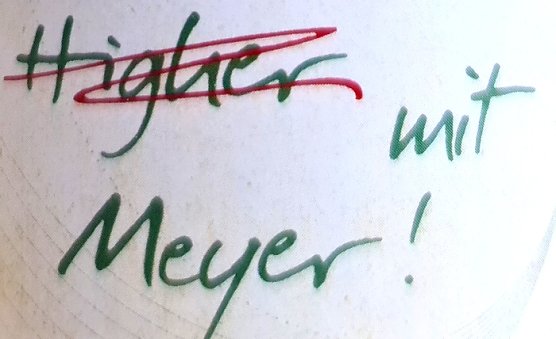 Higher
mit
Meyer!